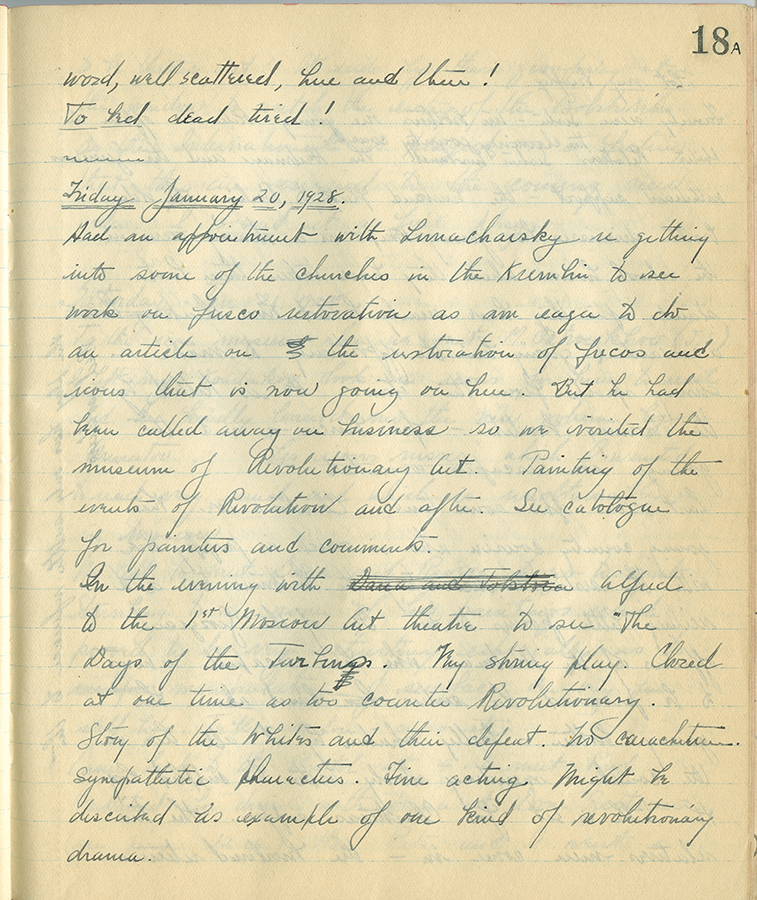 18A
word, well scattered, here and there!
To bed dead tired!
Friday January 20, 1928.
Had an appointment with Lunacharsky re getting
into some of the churches in the Kremlin to see
work on fresco restoration as am eager to do
an article on the restoration of frecos and
icons that is now going on here. But he had
been called away on business - so we visited the
museum of Revolutionary Art. Painting of the
events of Revolution and after. See catologue
for painters and comments.
In the evening with Dana and Tolstoi Alfred
to the 1st Moscow Art theatre to see "The
Days of the Turbins. My strong play. Closed
at one time as too counter Revolutionary.
Story of the Whites and their defeat. No
sympathetic characters. Fine acting Might be
described as example of one kind of revolutionary
drama.